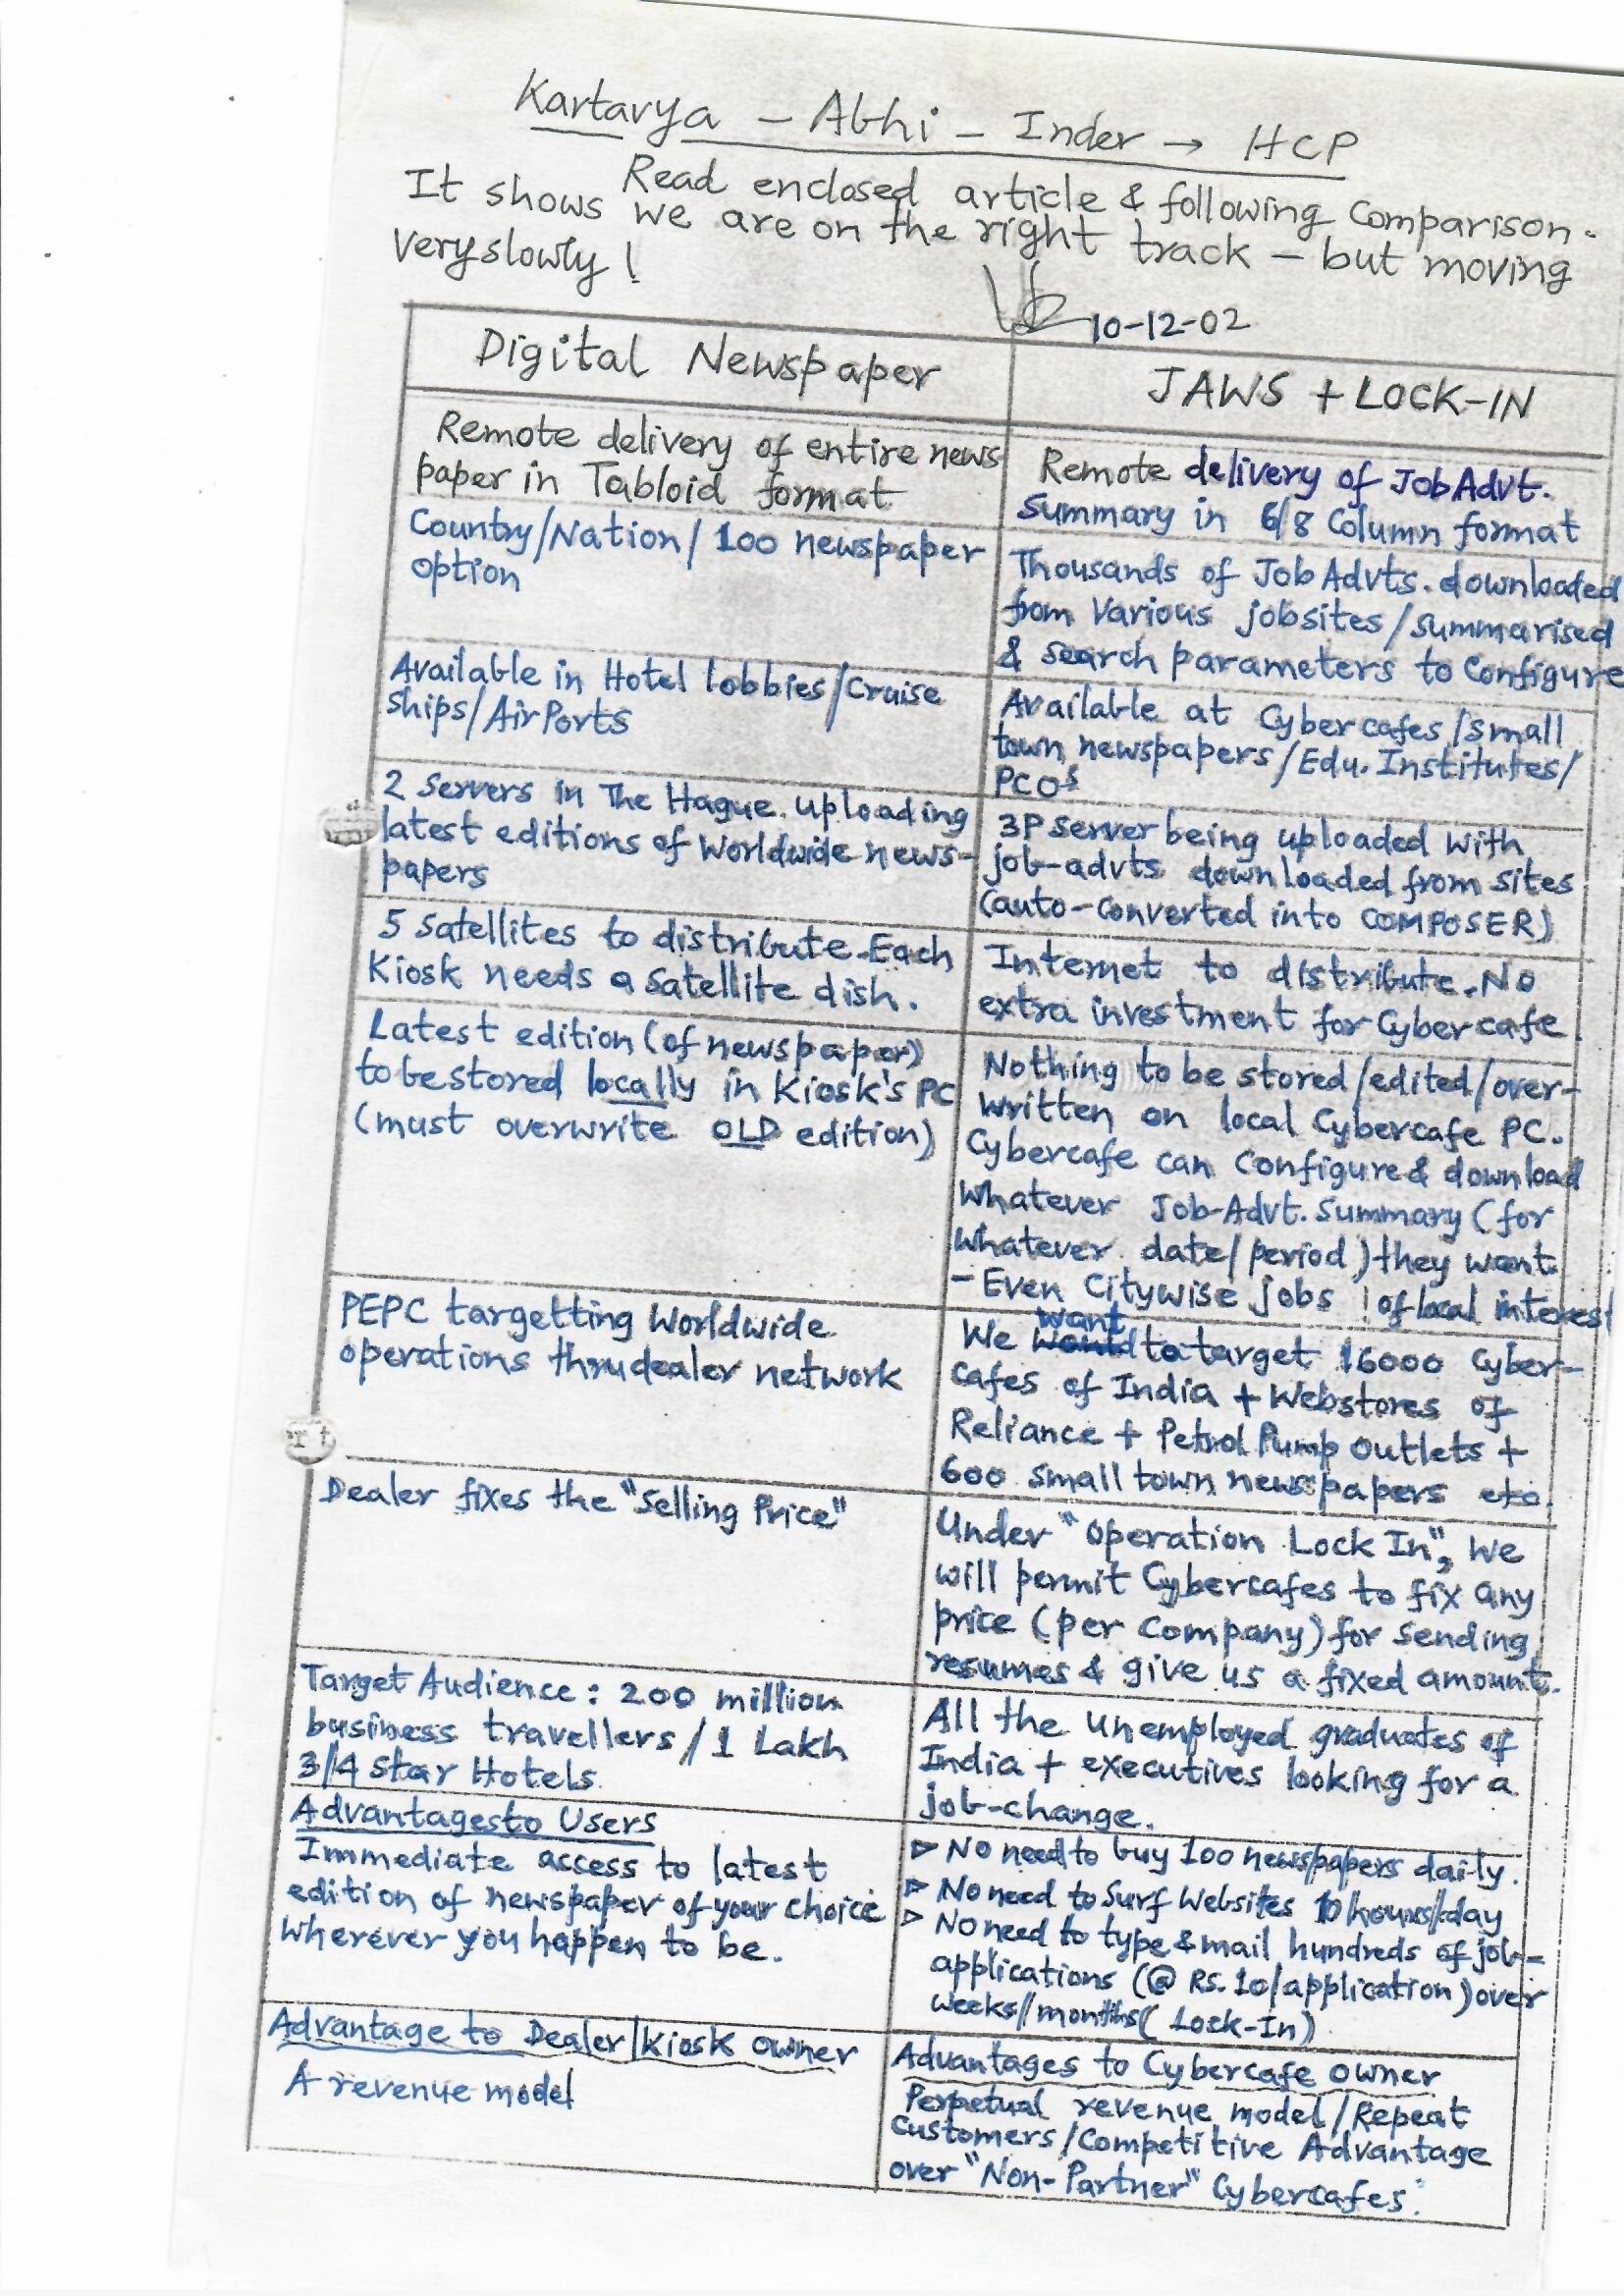 Kartavya - Abhi - Inder → HCP
Read enclosed article & following Comparison.
It shows we are on the right track - but moving
very slowly!
10-12-02
Digital Newspaper
JAWS + LOCK-IN
Remote delivery of entire news
paper in Tabloid format
Remote delivery of Job Advt.
Summary in 6/8 Column format
Country/Nation/100 newspaper
option
Thousands of Job Advts. downloaded
from various jobsites/summarised
& search parameters to Configure
Available in Hotel lobbies/Cruise
Ships/AirPorts
Available at Cybercafes/small
town newspapers/Edu. Institutes/
PCOs
2 Servers in The Hague uploading
latest editions of Worldwide news-
papers
3P server being uploaded with
job-advts downloaded from sites
(auto-converted into COMPOSER)
5 Satellites to distribute. Each
Kiosk needs a Satellite dish.
Internet to distribute. No
extra investment for Cybercafe.
Latest edition (of newspaper)
to be stored locally in Kiosk's PC
(must overwrite OLD edition)
Nothing to be stored/edited/over-
written on local Cybercafe PC.
Cybercafe can Configure & download
whatever Job-Advt. Summary (for
whatever date/period) they want
- Even Citywise jobs ! of local interest
PEPC targetting Worldwide
operations thru dealer network
want
We to target 16000 Cyber-
cafes of India + Webstores of
Reliance + Petrol Pump outlets +
600 small town newspapers etc.
Dealer fixes the "Selling Price"
Under "Operation Lock In", we
will permit Cybercafes to fix any
price (per Company) for sending
resumes & give us a fixed amount.
Target Audience: 200 million
business travellers/1 Lakh
3/4 Star Hotels
All the unemployed graduates of
India + executives looking for a
job-change.
Advantages to Users
Immediate access to latest
edition of newspaper of your choice
wherever you happen to be.
▷ No need to buy 100 newspapers daily.
▷ No need to Surf Websites 10 hours/day
▷ No need to type & mail hundreds of job-
applications (@ Rs. 10/application) over
weeks/months (Lock-In)
Advantage to Dealer/Kiosk Owner
A revenue model
Advantages to Cybercafe owner
Perpetual revenue model/Repeat
Customers/Competitive Advantage
over "Non-Partner" Cybercafes.